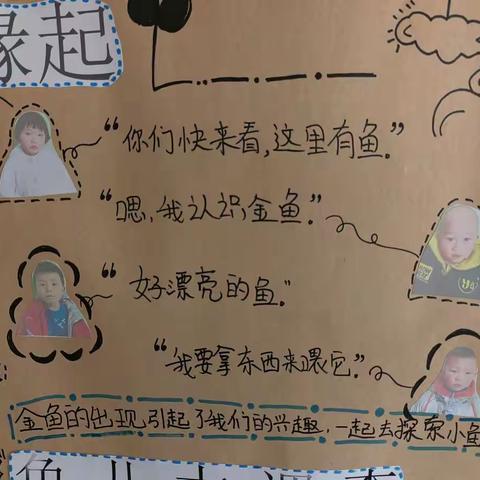 缘起
“你们快来看，这里有鱼。”
“嗯，我认识金鱼。”
“好漂亮的鱼。”
“我要拿东西来喂它。”
金鱼的出现，引起了我们的兴趣，一起去探索小鱼